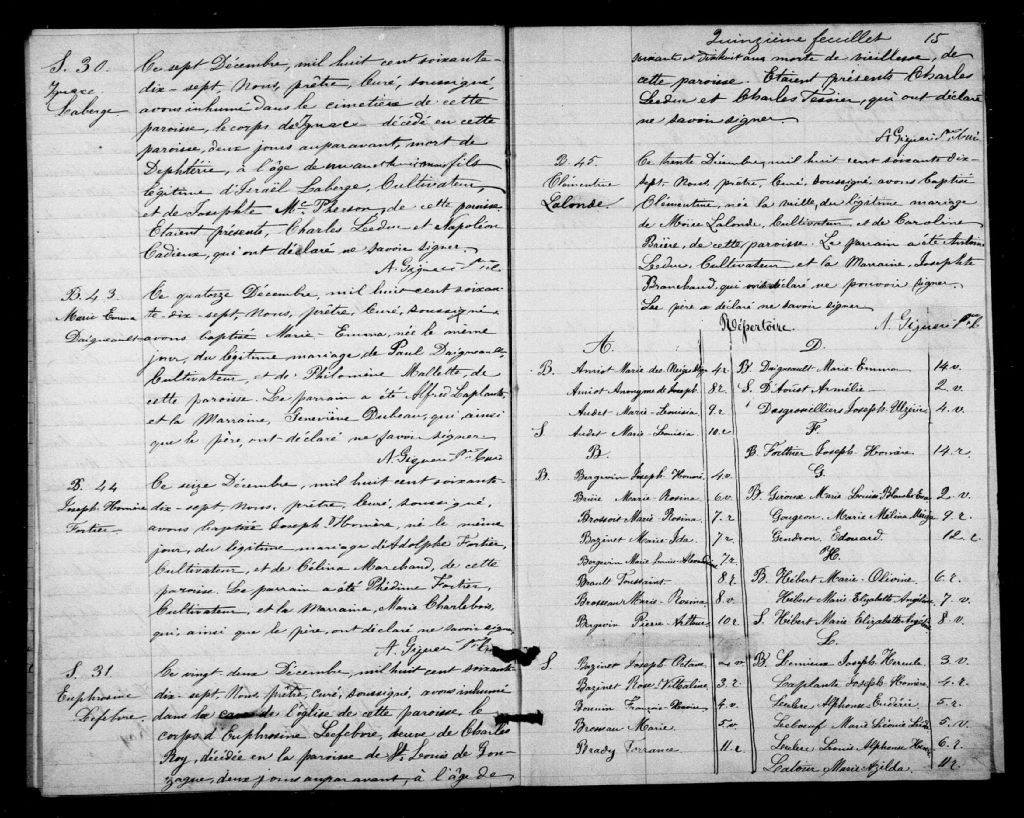 S. 30.
Ignace
Laberge
Ce sept Décembre, mil huit cent soixante-
dix-sept, Nous, prêtre, Curé, soussigné,
avons inhumé dans le cimetière de cette
paroisse, le corps de Ignace décédé en cette
paroisse, deux jours auparavant, mort de
Dephtérie, à l'âge de fils
légitime d'Israël Laberge, Cultivateur,
et de Josephte McPherson, de cette paroisse.
Etaient présents, Charles Leduc et Napoléon
Cadieux, qui ont déclaré ne savoir signer.
A. Giguère Ptre
B. 43
Marie Emma
Daigneault
Ce quatorze Décembre, mil huit cent soixan-
te-dix-sept, Nous, prêtre, Curé, soussigné
avons baptisé Marie-Emma, née le même
jour, du légitime mariage de Paul Daigneault,
Cultivateur, et de Philomène Mallette, de
cette paroisse. Le parrain a été Alfred Laplante
et la Marraine, Geneviève qui, ainsi
que le père, ont déclaré ne savoir signer.
A. Giguère Ptre Curé
B. 44
Joseph Homère
Fortier
Ce seize Décembre, mil huit cent soixante-
dix-sept, Nous, prêtre, Curé, soussigné,
avons baptisé Joseph Homère, né le même
jour, du légitime mariage d'Adolphe Fortier,
Cultivateur, et de Célina Marchand, de cette
paroisse. Le parrain a été Phédime Fortier,
Cultivateur, et la Marraine, Marie Charlebois,
qui, ainsi que le père, ont déclaré ne savoir signer.
A. Giguère Ptre
S. 31
Euphrosine
Lefebvre
Ce vingt deux Décembre, mil huit cent soixante
dix-sept, Nous, prêtre, curé, soussigné, avons inhumé
dans la cave de l'église de cette paroisse, le
corps d'Euphrosine Lefebvre, veuve de Charles
Roy, décédée en la paroisse de St. Louis de Gon-
zague, deux jours auparavant, à l'âge de
Quinzième feuillet 15
soixante et dixhuit ans morte de vieillesse, de
cette paroisse. Etaient présents Charles
Leduc et Charles Tessier, qui ont déclaré
ne savoir signer.
A Giguère Ptre Curé
B. 45.
Clémentine
Lalonde.
Ce trente Décembre, mil huit cent soixante dix-
sept, Nous, prêtre, Curé, soussigné, avons baptisé
Clémentine, née la veille, du légitime mariage
de Moïse Lalonde, Cultivateur, et de Caroline
de cette paroisse. Le parrain a été Antoine
Leduc, Cultivateur, et la Marraine, Josephte
Branchaud, qui ont déclaré ne pouvoir signer.
Le père a déclaré ne savoir signer
A. Giguère Ptre
Répertoire
A.
B. Amiot Marie des Neiges 4 r
Amiot Anonyme de Joseph 8 r.
Audet Marie-Louisia 9. r
S Audet Marie Louisia 10. r
B.
B. Bergevin Joseph Honoré 4. v.
Marie Rosina 6. v.
Brossois Marie Rosina 7. r
Bazinet Marie Ida 7. r
Bergevin Marie Louise 7. r
Brault Toussaint 8. r
Brosseau Marie-Rosina 8. v.
Bergevin Pierre-Arthur 10. r
S. Bazinet Joseph Octave v
Bazinet Rose 3. r
François-Xavier 4. v
Brosseau Marie 5. v
Brady Torrance 11. r
D.
B. Daigneault Marie-Emma 14. v.
S. D'Aoust Armélie 2. v.
Desgroseilliers Joseph 4. v.
F
B. Forthier Joseph-Homère 14. r
G.
B. Giroux Marie Louise Blanche 2. v.
Gougeon Marie Mélina 9. r.
Gendron Edouard. 12. r.
H.
B. Hébert Marie-Olivine 6. r.
Hébert Marie Elizabeth 7. v.
S. Hébert Marie Elizabeth 8. v
L.
B. Lemieux Joseph Hercule 3. v.
Laplante Joseph Homère 4. r.
Leclerc Alphonse 5. r
Leboeuf Marie 5. v
Leclerc Louis Alphonse 6. r.
Latour Marie Azilda. 11. r.